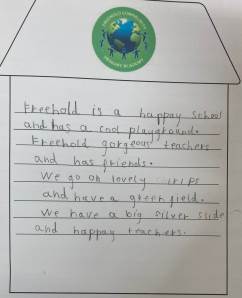 FREEHOLD COMMUNITY
PRIMARY ACADEMY
Freehold is a happay School
and has a cool playground.
Freehold gorgeous teachers
and has friends.
We go on lovely trips
and have a green field.
We have a big silver slide
and happay teachers.